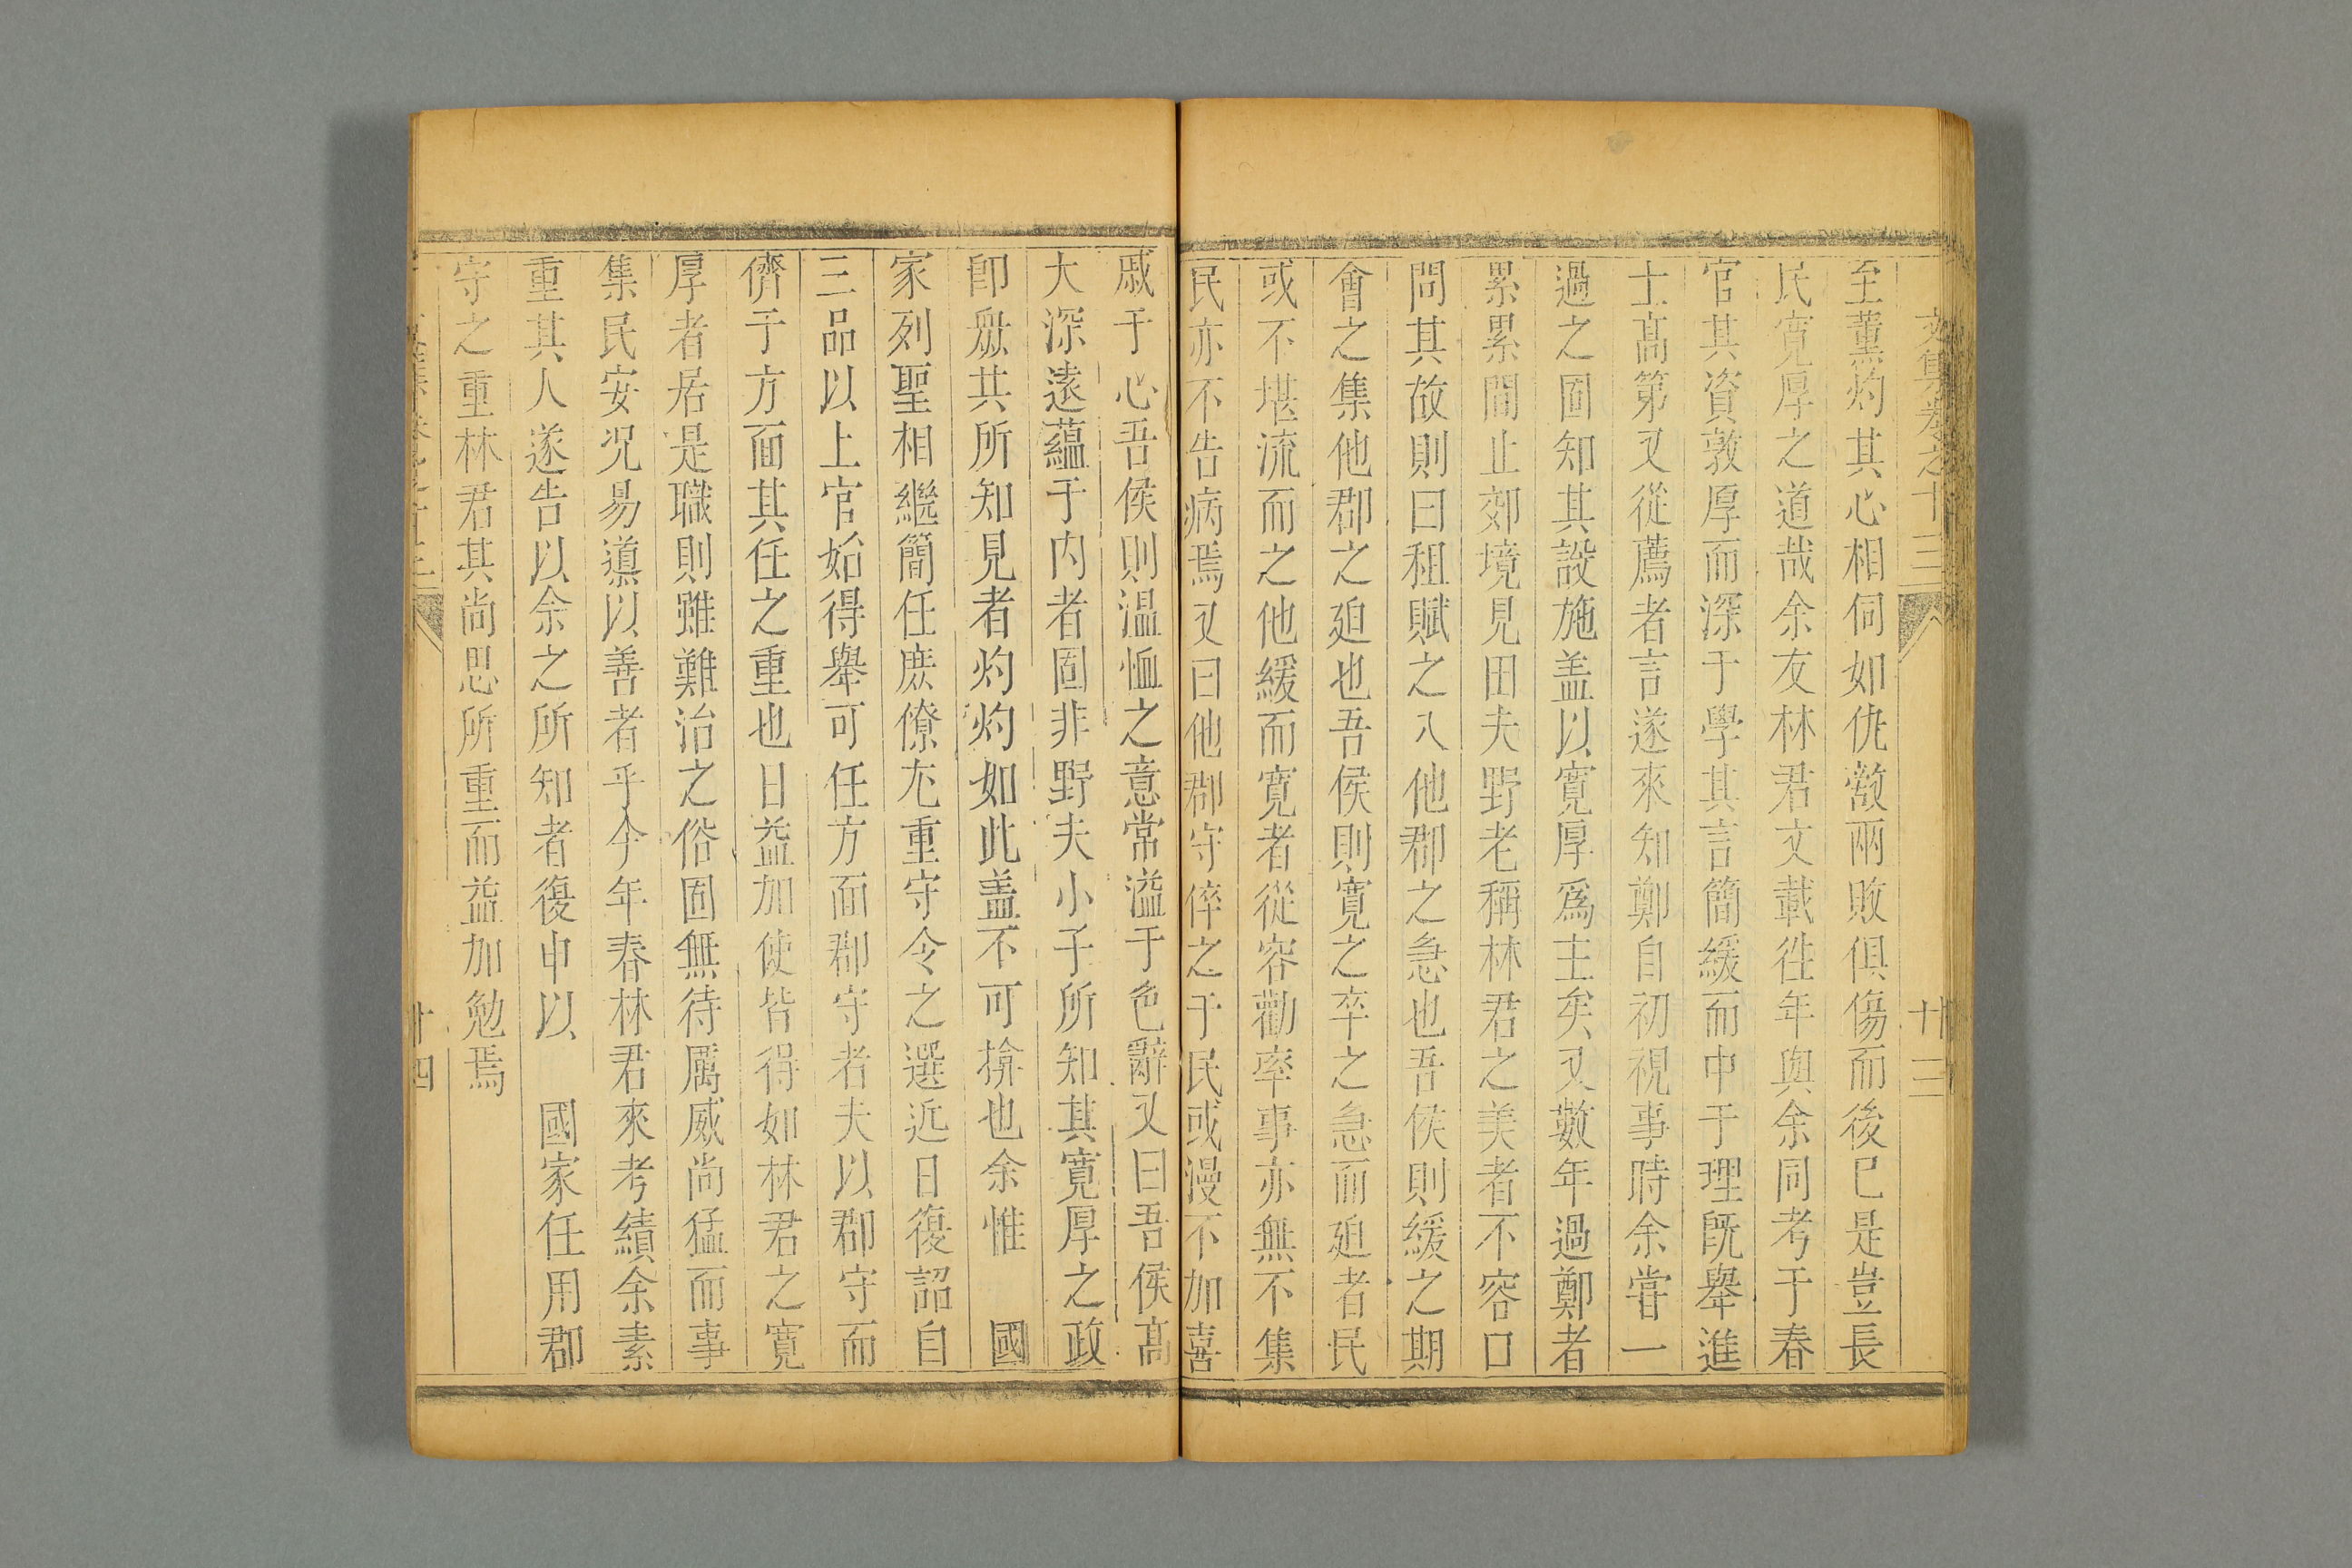 文集卷之十三 廿三
至薰灼其心相伺如仇敵兩敗俱傷而後已是豈長
民寛厚之道哉余友林君文載徃年與余同考于春
官其資敦厚而深于學其言簡緩而中于理既舉進
士髙第又從薦者言遂來知鄭自初視事時余甞一
過之固知其設施盖以寛厚爲主矣又數年過鄭者
累累間止郊境見田夫野老稱林君之美者不容口
問其故則曰租賦之入他郡之急也吾侯則緩之期
會之集他郡之廹也吾侯則寛之卒之急而廹者民
或不堪流而之他緩而寛者從容勸率事亦無不集
民亦不告病焉又曰他郡守倅之于民或漫不加喜
戚于心吾侯則温恤之意常溢于色辭又曰吾侯髙
大深遠蘊于内者固非野夫小子所知其寛厚之政
即衆共所知見者灼灼如此盖不可揜也余惟 國
家列聖相繼簡任庶僚尤重守令之選近日復詔自
三品以上官始得舉可任方面郡守者夫以郡守而
儕于方面其任之重也日益加使皆得如林君之寛
厚者居是職則雖難治之俗固無待厲威尚猛而事
集民安况易導以善者乎今年春林君來考績余素
重其人遂告以余之所知者復申以 國家任用郡
守之重林君其尚思所重而益加勉焉
廿四